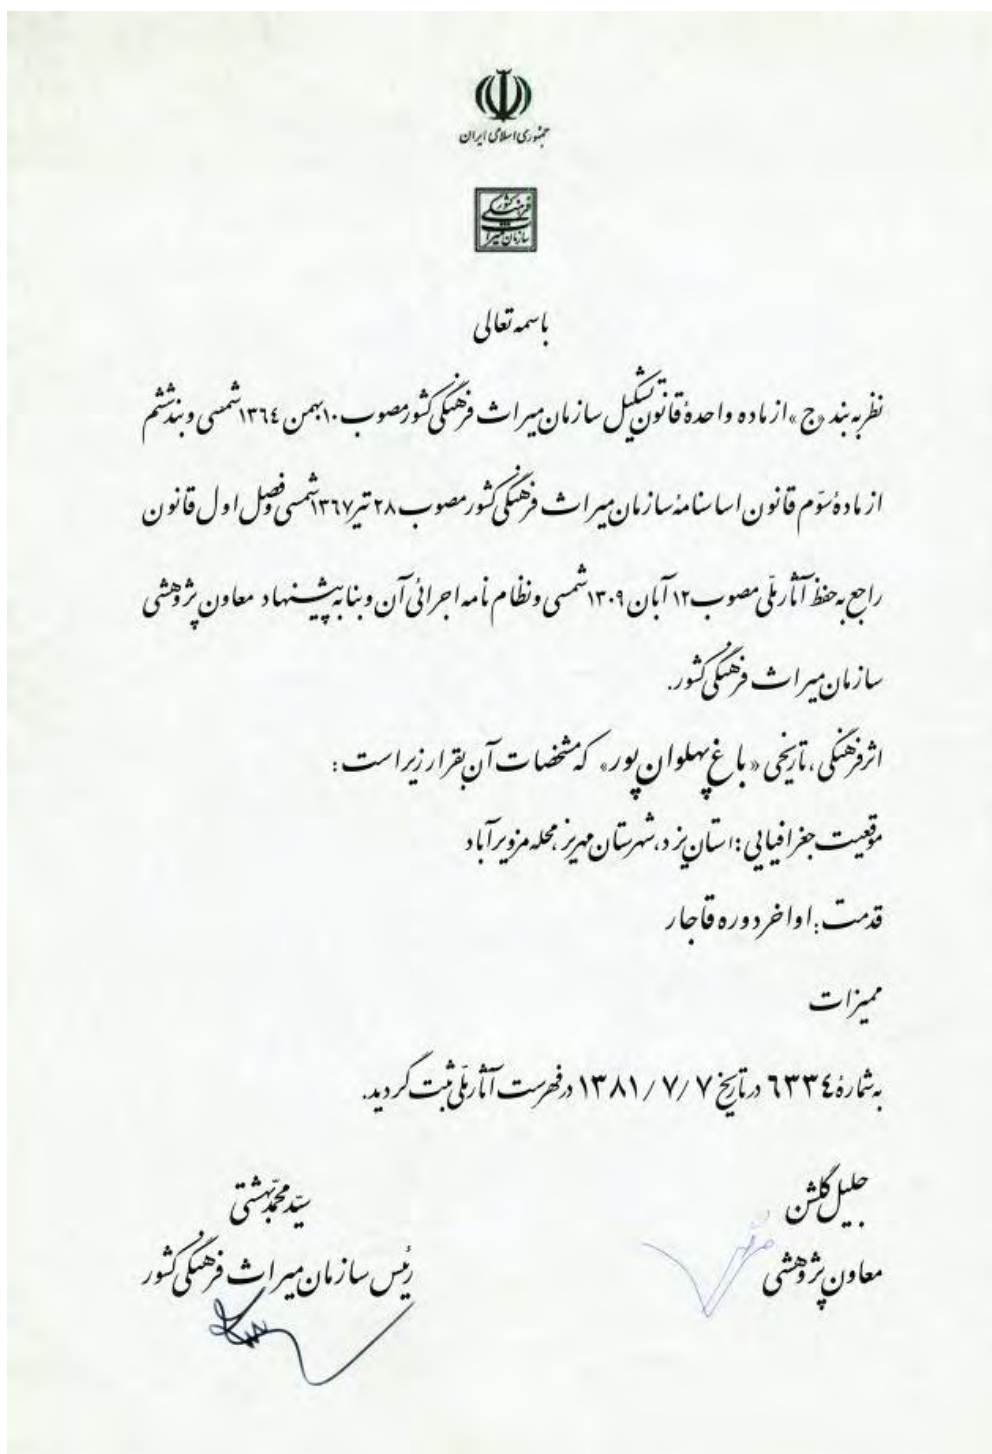 جمهوری اسلامی ایران
سازمان میراث فرهنگی کشور
باسمه تعالی
نظر به بند «ج» از ماده واحدهٔ قانون تشکیل سازمان میراث فرهنگی کشور مصوب ۱۰ بهمن ۱۳٦٤ شمسی و بند ششم
از مادهٔ سوّم قانون اساسنامهٔ سازمان میراث فرهنگی کشور مصوب ۲۸ تیر ۱۳٦۷ شمسی و فصل اول قانون
راجع به حفظ آثار ملّی مصوب ۱۲ آبان ۱۳۰۹ شمسی و نظام نامه اجرائی آن و بنا به پیشنهاد معاون پژوهشی
سازمان میراث فرهنگی کشور.
اثر فرهنگی، تاریخی «باغ پهلوان پور» که مشخصات آن بقرار زیر است:
موقعیت جغرافیایی: استان یزد، شهرستان مهریز، محله مزویرآباد
قدمت: اواخر دوره قاجار
ممیزات
به شمارهٔ ٦۳۳٤ در تاریخ ۷ / ۷ / ۱۳۸۱ در فهرست آثار ملّی ثبت گردید.
جلیل گلشن
معاون پژوهشی
سیّد محمّد بهشتی
رئیس سازمان میراث فرهنگی کشور